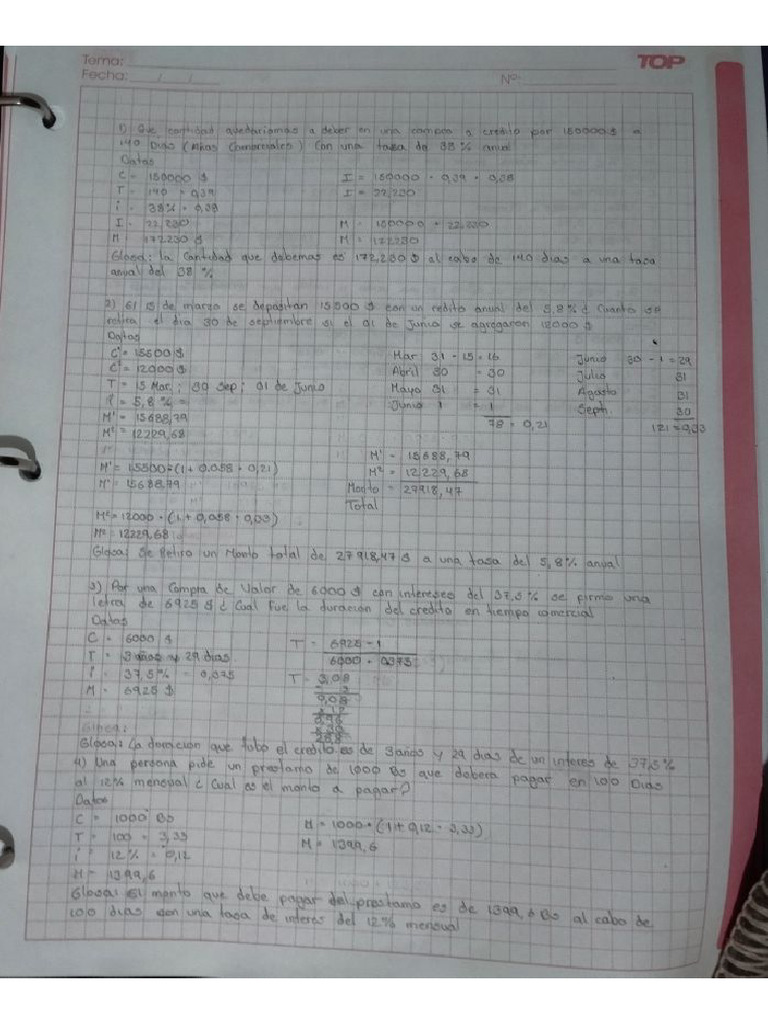 Tema:
TOP
Fecha: / /
Nº
1) Que cantidad quedariamos a deber en una compra a credito por 150000$ a
140 Dias (Años Comerciales) Con una tassa del 38% anual
Datos
C = 150000 $
I = 150000 · 0,39 · 0,38
T = 140 = 0,39
I = 22,230
i = 38% = 0,38
I = 22,230
M = 150000 + 22,230
M = 172230 $
M = 172230
Glosa: La cantidad que debemos es 172,230$ al cabo de 140 dias a una tasa
anual del 38 %
2) El 15 de marzo se depositan 15500 $ con un credito anual del 5,8% ¿ Cuanto se
retira el dia 30 de septiembre si el 01 de Junio se agregaron 12000 $
Datos
C¹ = 15500 $
Mar 31 - 15 = 16
Junio 30 - 1 = 29
C² = 12000 $
Abril 30 = 30
Julio 31
T = 15 Mar ; 30 Sep ; 01 de Junio
Mayo 31 = 31
Agosto 31
i = 5,8 % =
Junio 1 = 1
Seph. 30
M¹ = 15688,79
78 = 0,21
121 = 0,33
M² = 12229,68
M¹ = 15688,79
M¹ = 15500 · (1 + 0,058 · 0,21)
M² = 12,229,68
M¹ = 15688,79
Monto = 27918,47
Total
M² = 12000 · (1 + 0,058 · 0,33)
M² = 12229,68
Glosa: Se Retiro un Monto total de 27918,47 $ a una tasa del 5,8% anual
3) Por una Compra de Valor de 6000 $ con intereses del 37,5 % se firmo una
letra de 6925 $ ¿ Cual fue la duracion del credito en tiempo comercial
Datos
C = 6000 $
T = 6925 - 1
T = 3 años y 29 dias
6000 · 0,375
i = 37,5 % = 0,375
T = 3,08
M = 6925 $
0,08
Glosa:
Glosa: La duracion que tubo el credito es de 3 años y 29 dias de un interes de 37,5%
4) Una persona pide un prestamo de 1000 Bs que debera pagar en 100 Dias
al 12% mensual ¿ Cual es el monto a pagar?
Datos
C = 1000 Bs
M = 1000 · (1 + 0,12 · 3,33)
T = 100 = 3,33
M = 1399,6
i = 12 % = 0,12
M = 1399,6
Glosa: El monto que debe pagar del prestamo es de 1399,6 Bs al cabo de
100 dias con una tasa de interes del 12% mensual